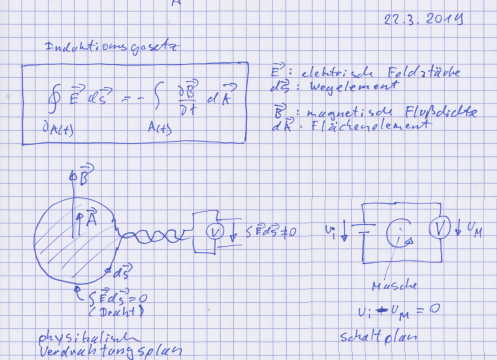 22.3.2019
Induktionsgesetz
∮ E⃗ ds⃗ = - ∫ ∂B⃗/∂t dA⃗
∂A(t) A(t)
E⃗: elektrische Feldstärke
ds⃗: Wegelement
B⃗: magnetische Flußdichte
dA⃗: Flächenelement
B⃗
A⃗
ds⃗
∫ E⃗ ds⃗ = 0
(Draht)
V
∫ E⃗ ds⃗ ≠ 0
physikalisch
Verdrahtungsplan
Ui
i
V
UM
Masche
Ui - UM = 0
Schaltplan